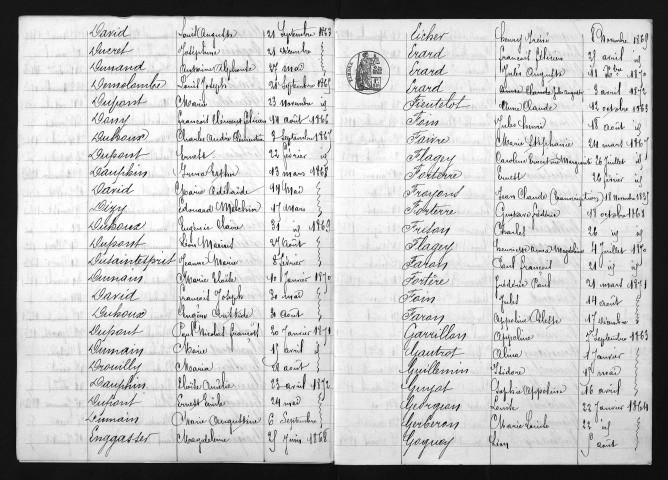 David Louis Auguste 21 Septembre 1863
Ducret Joséphine 21 décembre
Dunand Antoine Alphonse 27 mai
Louis Joseph 21 Septembre 1865
Dupont Marie 23 novembre id
Dany François Clément 10 août 1866
Duhoux Charles André Clémentin 2 Septembre 1867
Dupont Ernest 22 février id
Dauphin Irma Esther 13 mars 1868
David Marie Adélaïde mai
Dizy Edouard Melchior 17 mars
Duhoux Eugénie Claire 31 id 1869
Dupont Léon Marius 27 août
Dusaintesprit Jeanne Marie 8 février
Dumain Marie Eloïse 10 Janvier 1870
David François Joseph 30 mai
Duhoux Eugène 30 août
Dupont Paul Nicolas François 20 Janvier 1871
Dumain Marie 15 avril id
Drouilly Maria août
Dauphin Eloïse Amélie 23 avril 1872
Dupont Ernest Emile 24 mai
Dumain Marie Augustine 6 Septembre
Enggasser Magdeleine 25 Juin 1868
Eicher Henry 8 Novembre 1869
Erard François 25 avril id
Erard Jules Auguste 11 1870
Erard 3 avril 1872
Fieutelot Claude 12 octobre 1863
Foin Jules 18 août id
Faivre Marie Stéphanie 24 mars 1867
Flagey Caroline Marguerite 26 Juillet id
Forterre Ernest 26 février id
Froyons Jean Claude 18 Novembre
Forterre Gustave octobre 1868
Frison Charles 26 id id
Flagey Henriette Anne Magdeleine 4 Juillet 1870
Faron Paul François 21 id id
Fortère Frédéric Paul 21 mars 1871
Foin Jules 14 août
Faron Appoline Céleste 17 décembre
Garrillon Appoline Septembre 1863
Gautrot Alma 1 Janvier
Guillemin Isidore mai
Guyot Sophie Appoline 16 avril
Georgeon Louise 22 Janvier 1864
Gerberon Marie Louise 22 id
Goguey Léon 5 août